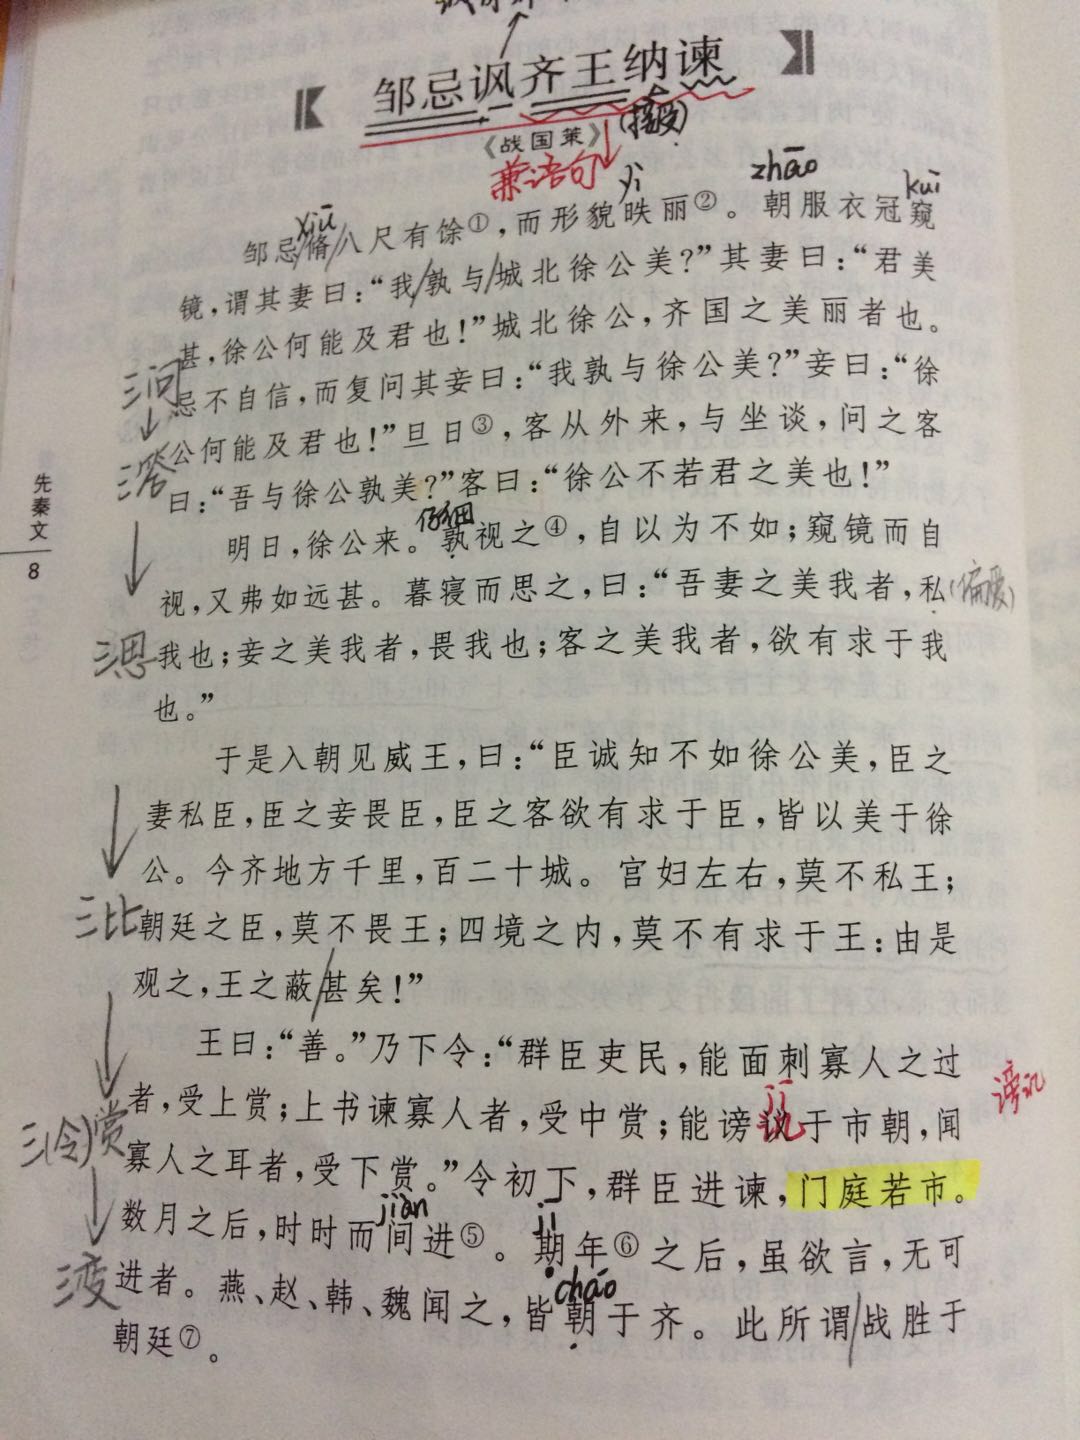 邹忌讽齐王纳谏
(接受)
《战国策》
兼语句
yì
zhāo
kuī
xiū
邹忌脩八尺有馀①，而形貌昳丽②。朝服衣冠窥
镜，谓其妻曰：“我孰与城北徐公美？”其妻曰：“君美
甚，徐公何能及君也！”城北徐公，齐国之美丽者也。
忌不自信，而复问其妾曰：“我孰与徐公美？”妾曰：“徐
公何能及君也！”旦日③，客从外来，与坐谈，问之客
曰：“吾与徐公孰美？”客曰：“徐公不若君之美也！”
仔细
明日，徐公来。孰视之④，自以为不如；窥镜而自
视，又弗如远甚。暮寝而思之，曰：“吾妻之美我者，私
(偏爱)
我也；妾之美我者，畏我也；客之美我者，欲有求于我
也。”
于是入朝见威王，曰：“臣诚知不如徐公美，臣之
妻私臣，臣之妾畏臣，臣之客欲有求于臣，皆以美于徐
公。今齐地方千里，百二十城。宫妇左右，莫不私王；
朝廷之臣，莫不畏王；四境之内，莫不有求于王：由是
观之，王之蔽甚矣！”
王曰：“善。”乃下令：“群臣吏民，能面刺寡人之过
者，受上赏；上书谏寡人者，受中赏；能谤讥于市朝，闻
jī
谤讥
寡人之耳者，受下赏。”令初下，群臣进谏，门庭若市。
jiàn
jī
数月之后，时时而间进⑤。期年⑥之后，虽欲言，无可
cháo
进者。燕、赵、韩、魏闻之，皆朝于齐。此所谓战胜于
朝廷⑦。
三问
三答
三思
三比
三(令)赏
三变
先秦文
8